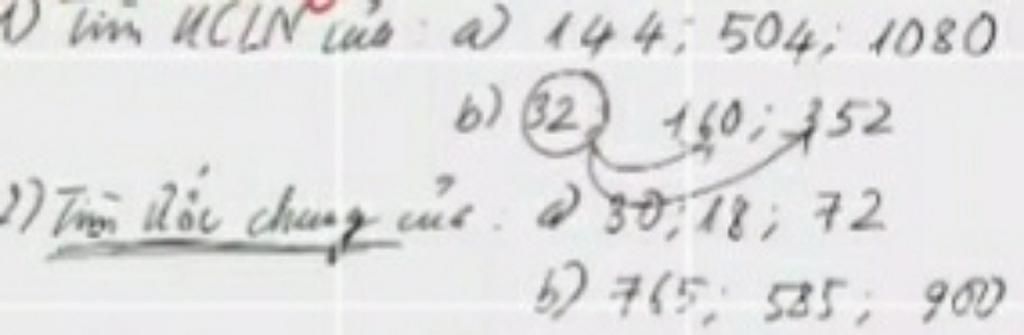 1) Tìm ƯCLN của: a) 144; 504; 1080
b) 32 160; 352
2) Tìm Ước chung của: a) 30; 18; 72
b) 765; 585; 900